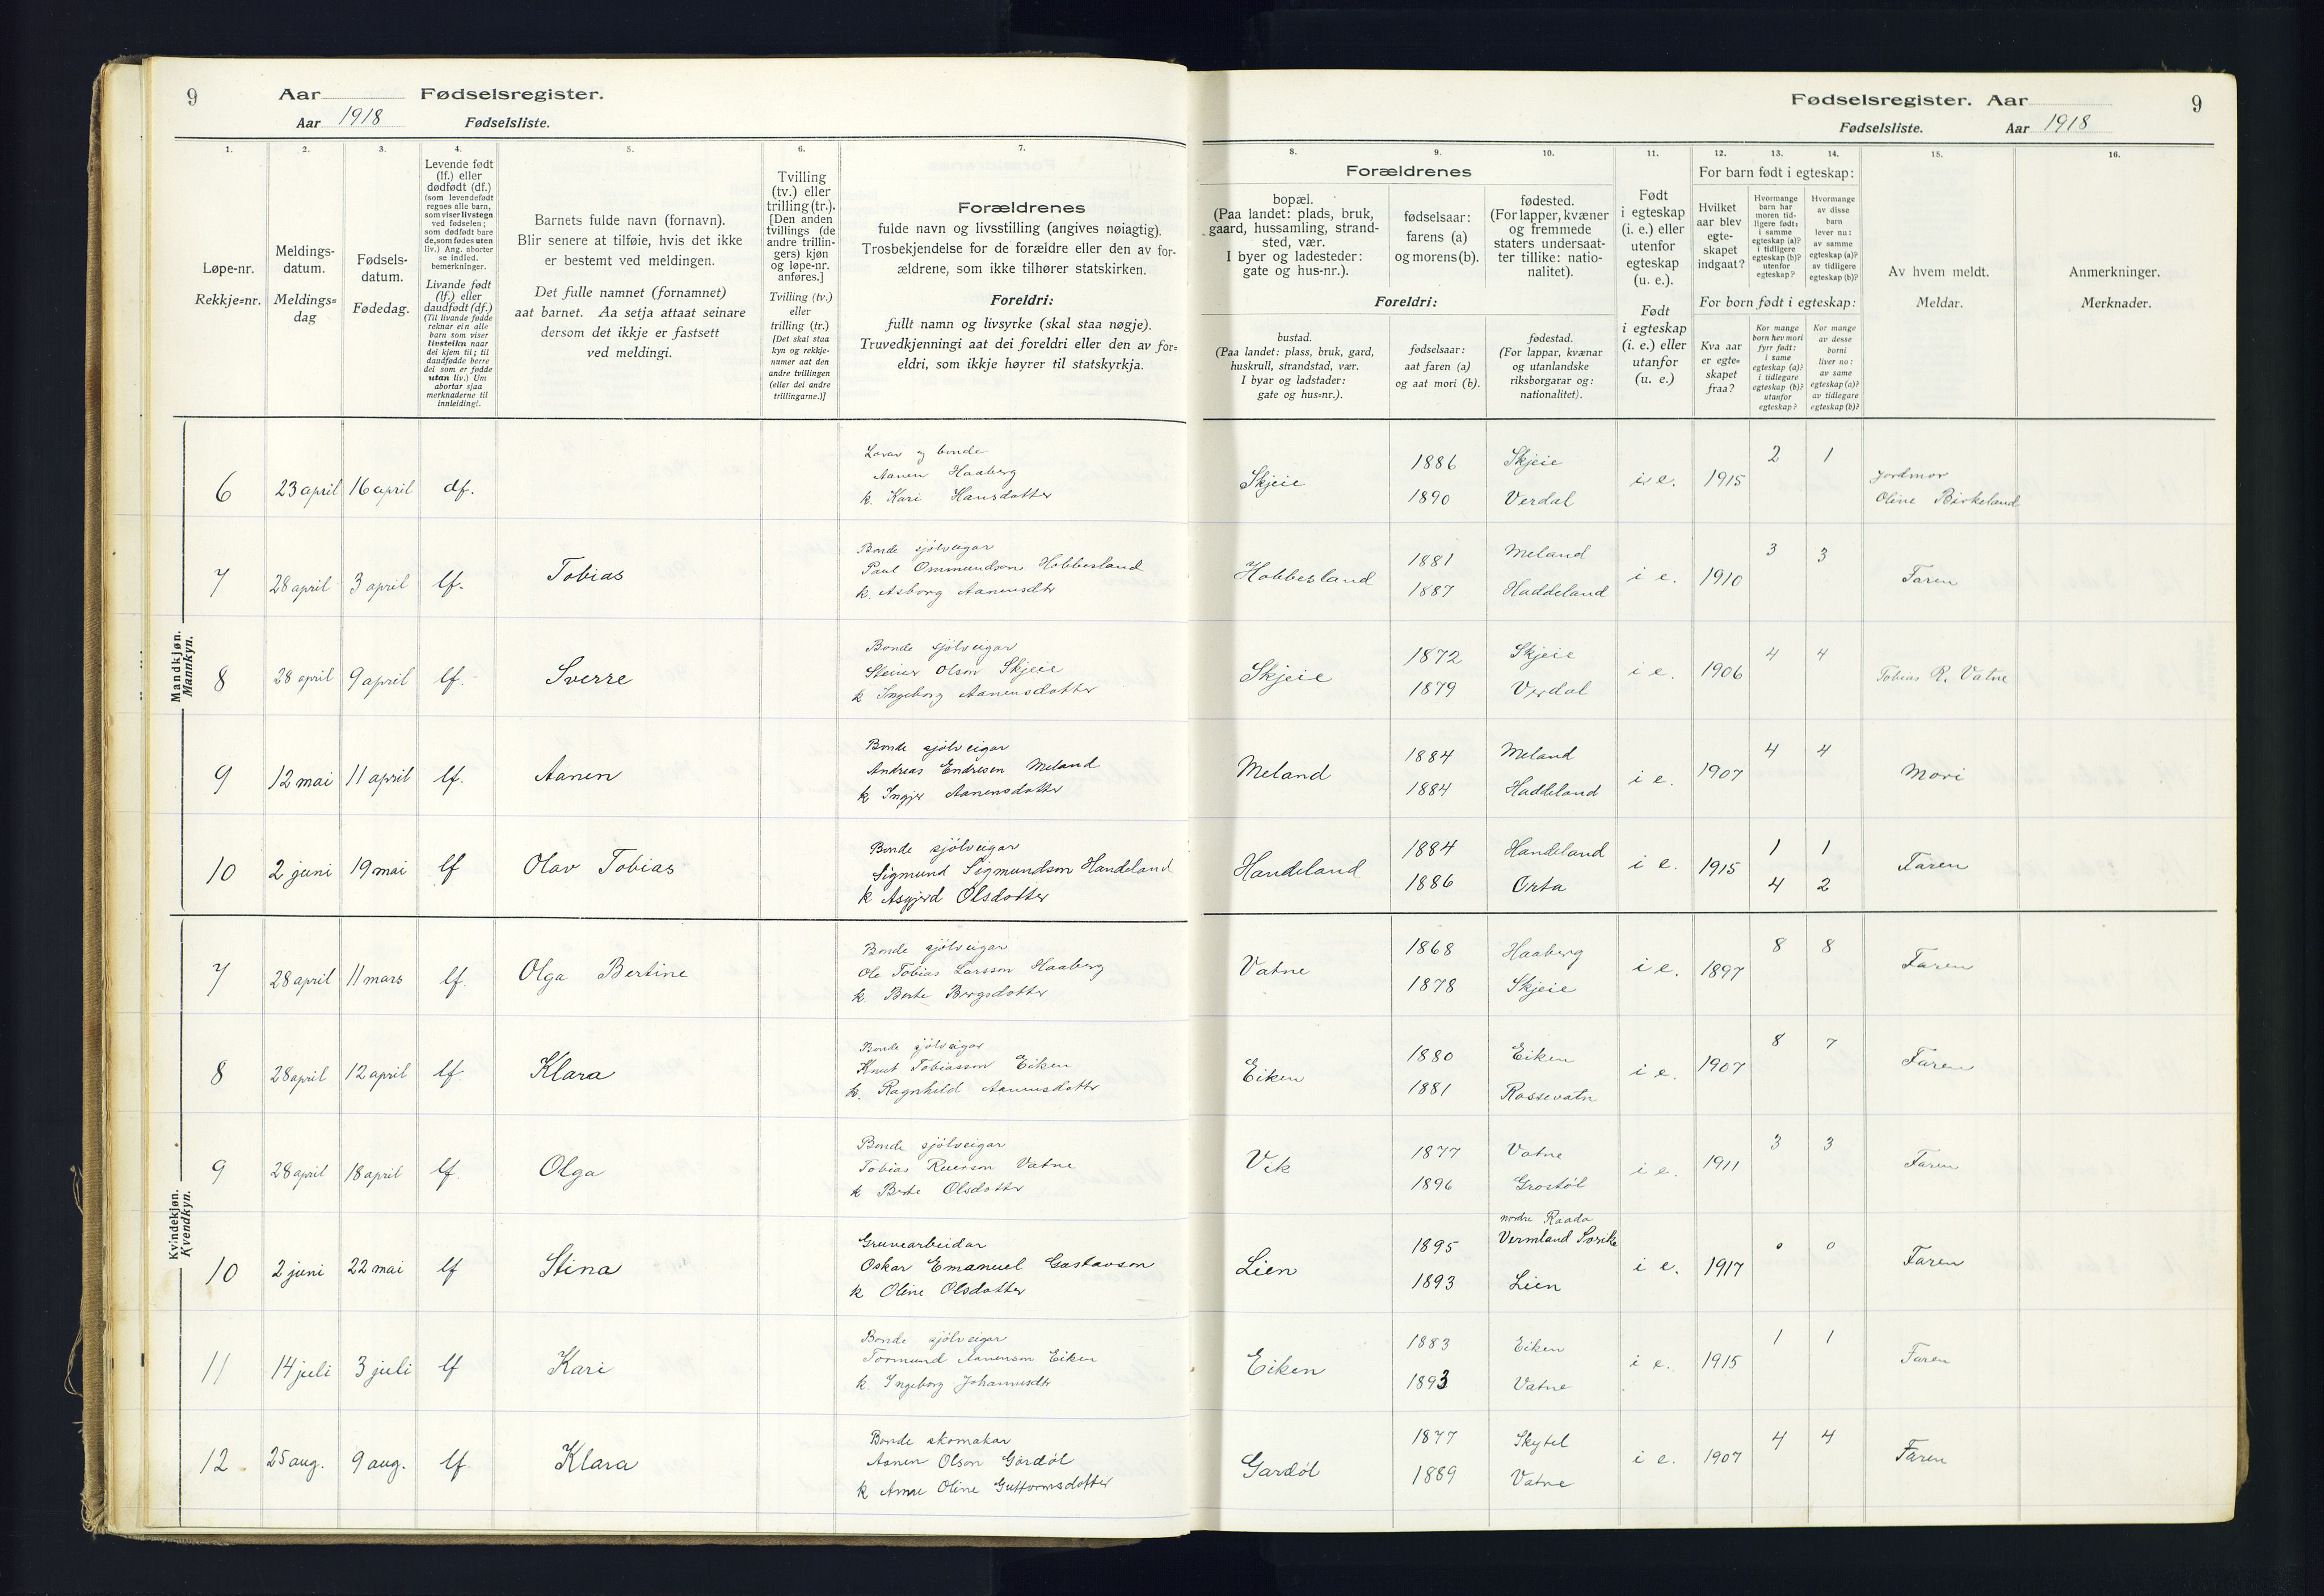 9
Aar
Fødselsregister.
Aar 1918
Fødselsliste.
1.
Løpe-nr.
Rekkje=nr.
2.
Meldings-
datum.
Meldings=
dag
3.
Fødsels-
datum.
Fødedag.
4.
Levende født
(lf.) eller
dødfødt (df.)
(som levendefødt
regnes alle barn,
som viser livstegn
ved fødselen;
som dødfødt bare
de, som fødes uten
liv.) Ang. aborter
se indled.
bemerkninger.
Livande født
(lf.) eller
daudfødt (df.)
(Til livande fødde
reknar ein alle
barn som viser
livsteikn naar
dei kjem til; til
daudfødde berre
dei som er fødde
utan liv.) Um
abortar sjaa
merknaderne til
innleidingi.
5.
Barnets fulde navn (fornavn).
Blir senere at tilføie, hvis det ikke
er bestemt ved meldingen.
Det fulle namnet (fornamnet)
aat barnet. Aa setja attaat seinare
dersom det ikkje er fastsett
ved meldingi.
6.
Tvilling
(tv.) eller
trilling (tr.).
[Den anden
tvillings (de
andre trillin-
gers) kjøn
og løpe-nr.
anføres.]
Tvilling (tv.)
eller
trilling (tr.)
[Det skal staa
kyn og rekkje-
numer aat den
andre tvillingen
(eller dei andre
trillingarne.)]
7.
Forældrenes
fulde navn og livsstilling (angives nøiagtig).
Trosbekjendelse for de forældre eller den av for-
ældrene, som ikke tilhører statskirken.
Foreldri:
fullt namn og livsyrke (skal staa nøgje).
Truvedkjenningi aat dei foreldri eller den av for=
eldri, som ikkje høyrer til statskyrkja.
Mandkjøn.
Mannkyn.
6 23 april 16 april df.
og bonde
Aanen Haaberg
k. Kari Hansdotter
7 28 april 3 april lf. Tobias
Bonde sjölveigar
Paul Ommundson Hobbesland
k. Asborg Aanensdtr
8 28 april 9 april lf. Sverre
Bonde sjölveigar
Steiner Olson Skjeie
k Ingeborg Aanensdotter
9 12 mai 11 april lf. Aanen
Bonde sjölveigar
Andreas Endresen Meland
k Ingjer Aanensdotter
10 2 juni 19 mai lf Olav Tobias
Bonde sjölveigar
Sigmund Sigmundson Handeland
k Asgjerd Olsdotter
Kvindekjøn.
Kvendkyn.
7 28 april 11 mars lf. Olga Bertine
Bonde sjölveigar
Ole Tobias Larsson Haaberg
k. Berte Bergsdotter
8 28 april 12 april lf. Klara
Bonde sjölveigar
Knut Tobiasson Eiken
k. Ragnhild Aanensdotter
9 28 april 18 april lf. Olga
Bonde sjölveigar
Tobias Reierson Vatne
k Berte Olsdotter
10 2 juni 22 mai lf Stina
Gruvearbeidar
Oskar Emanuel Gustavson
k Oline Olsdotter
11 14 juli 3 juli lf Kari
Bonde sjölveigar
Tormund Aanenson Eiken
k. Ingeborg Johannesdtr
12 25 aug. 9 aug. lf Klara
Bonde skomakar
Aanen Olson Gardöl
k Anne Oline Guttormsdotter
Fødselsregister. Aar
9
Fødselsliste. Aar 1918
8.
9.
10.
Forældrenes
bopæl.
(Paa landet: plads, bruk,
gaard, hussamling, strand-
sted, vær.
I byer og ladesteder:
gate og hus-nr.).
fødselsaar:
farens (a)
og morens (b).
fødested.
(For lapper, kvæner
og fremmede
staters undersaat-
ter tillike: natio-
nalitet).
Foreldri:
bustad.
(Paa landet: plass, bruk, gard,
huskrull, strandstad, vær.
I byar og ladstader:
gate og hus=nr.).
fødselsaar:
aat faren (a)
og aat mori (b).
fødestad.
(For lappar, kvænar
og utanlandske
riksborgarar og:
nationalitet).
11.
Født
i egteskap
(i. e.) eller
utenfor
egteskap
(u. e.).
Født
i egteskap
(i. e.) eller
utanfor
(u. e.)
12.
13.
14.
For barn født i egteskap:
Hvilket
aar blev
egte-
skapet
indgaat?
Hvormange
barn har
moren tid-
ligere født:
i samme
egteskap (a)?
i tidligere
egteskap (b)?
utenfor
egteskap?
Hvormange
av disse
barn
lever nu:
av samme
egteskap (a)?
av tidligere
egteskap (b)?
For born født i egteskap:
Kva aar
er egte=
skapet
fraa?
Kor mange
born hev mori
fyrr født:
i same
egteskap (a)?
i tidlegare
egteskap (b)?
utanfor
egteskap?
Kor mange
av desse
borni
liver no:
av same
egteskap (a)?
av tidlegare
egteskap (b)?
15.
Av hvem meldt.
Meldar.
16.
Anmerkninger.
Merknader.
Skjeie 1886 Skjeie i e. 1915 2 1 Jordmor
1890 Verdal Oline Birkeland
Hobbesland 1881 Meland i e. 1910 3 3 Faren
1887 Haddeland
Skjeie 1872 Skjeie i e. 1906 4 4 Tobias R. Vatne
1879 Verdal
Meland 1884 Meland i e. 1907 4 4 Mori
1884 Haddeland
Handeland 1884 Handeland i e. 1915 1 1 Faren
1886 Orta 4 2
Vatne 1868 Haaberg i e. 1897 8 8 Faren
1878 Skjeie
Eiken 1880 Eiken i e. 1907 8 7 Faren
1881 Rossevatn
Vik 1877 Vatne i e. 1911 3 3 Faren
1896 Grostöl
nordre Raada
Lien 1895 Vermland i e. 1917 0 0 Faren
1893 Lien
Eiken 1883 Eiken i e. 1915 1 1 Faren
1893 Vatne
Gardöl 1877 Skytel i e. 1907 4 4 Faren
1889 Vatne